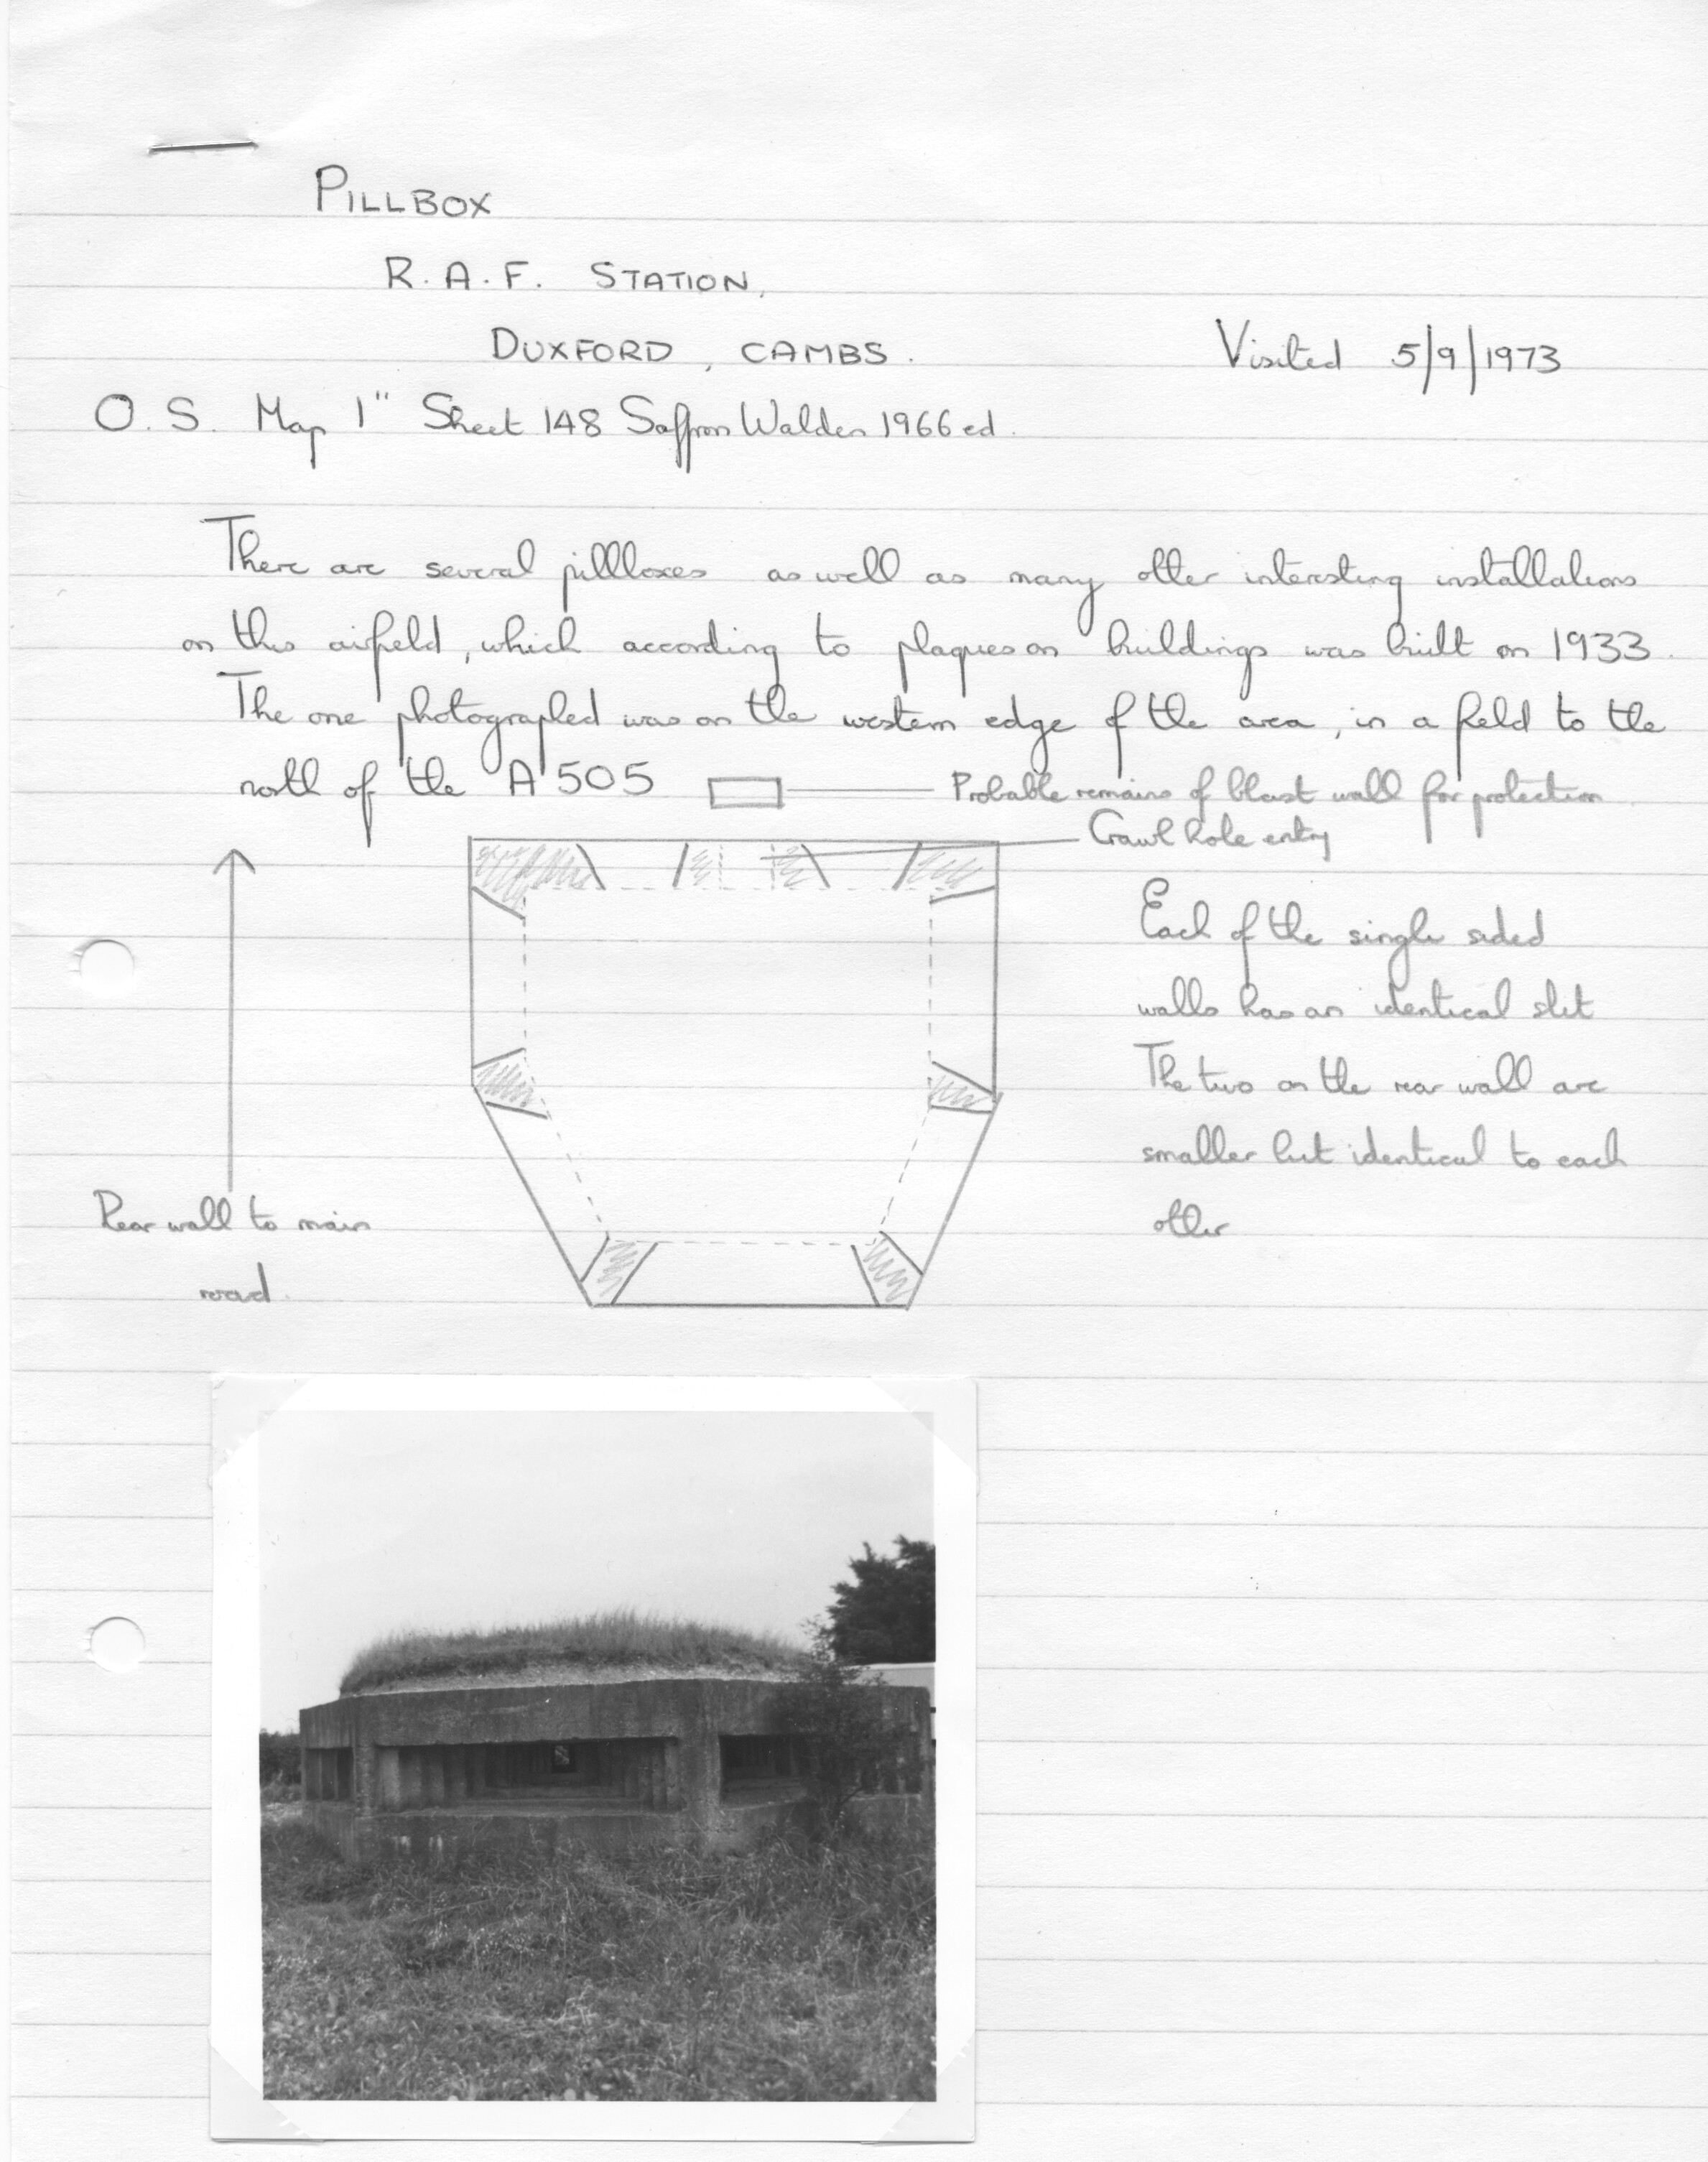 PILLBOX
R.A.F. STATION,
DUXFORD, CAMBS.
Visited 5/9/1973
O.S. Map 1" Sheet 148 Saffron Walden 1966 ed.
There are several pillboxes as well as many other interesting installations
on this airfield, which according to plaques on buildings was built in 1933.
The one photographed was on the western edge of the area, in a field to the
north of the A505
Probable remains of blast wall for protection
Crawl hole entry
Each of the single sided
walls has an identical slit
The two on the rear wall are
smaller but identical to each
other
Rear wall to main
road.